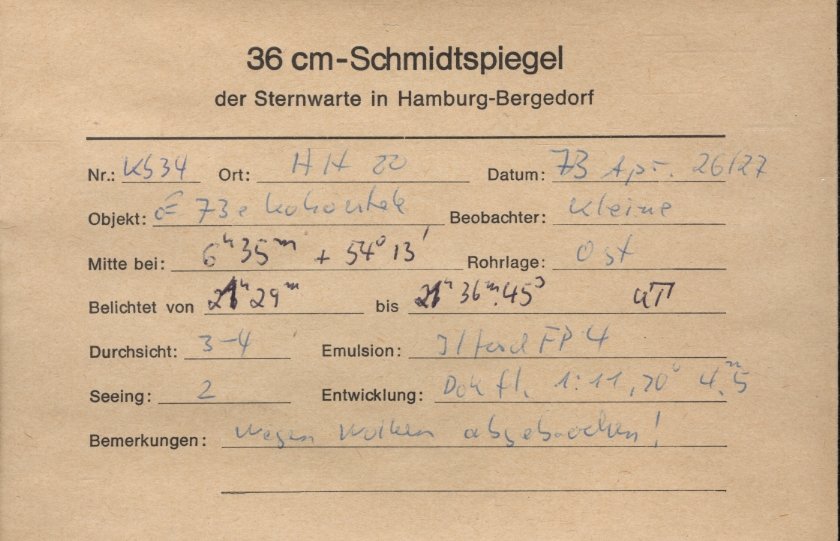 36 cm-Schmidtspiegel
der Sternwarte in Hamburg-Bergedorf
Nr.: KS34 Ort: HH 20 Datum: 73 Apr. 26/27
Objekt: 73e Kohoutek Beobachter: Kleine
Mitte bei: 6h 35m + 54° 13' Rohrlage: Ost
Belichtet von 21h 29m bis 21h 36m.45s UT
Durchsicht: 3-4 Emulsion: Ilford FP4
Seeing: 2 Entwicklung: 1:11, 20° 4.m5
Bemerkungen: wegen Wolken abgebrochen!